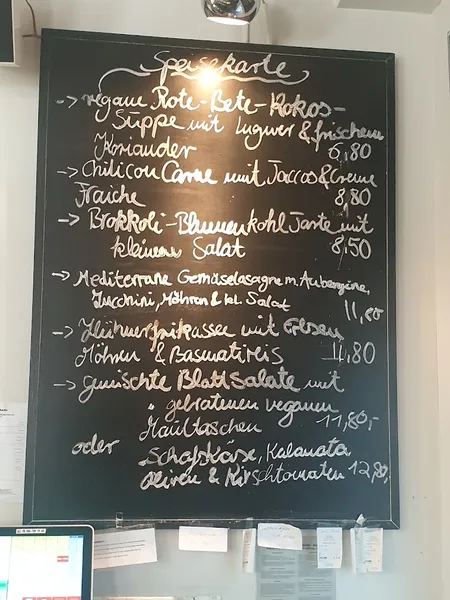 Speisekarte
-> vegane Rote-Bete-Kokos-
Suppe mit Ingwer & frischem
Koriander 6,80
-> Chili con Carne mit Taccos & Creme
Fraiche 8,80
-> Brokkoli-Blumenkohl Tarte mit
kleinem Salat 8,50
-> Mediterrane Gemüselasagne m. Aubergine,
Zucchini, Möhren & kl. Salat
11,80
-> Hühnerfrikassee mit Erbsen
Möhren & Basmatireis 11,80
-> gemischte Blatt Salate mit
" gebratenen veganen
Maultaschen 11,80,-
oder Schafskäse, Kalamata
oliven & Kirschtomaten 12,80,